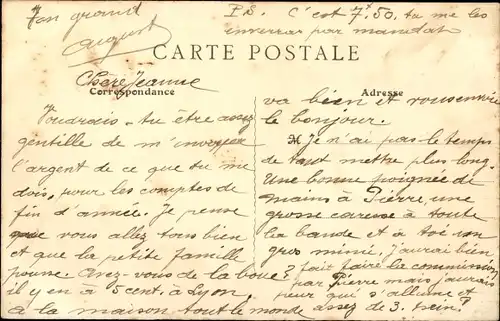 Ton grand
August
P.S. C'est 7f50, tu me les
enverras par mandat
CARTE POSTALE
Chère Jeanne
Correspondance
Voudrais-tu être assez
gentille de m'envoyer
l'argent de ce que tu me
dois, pour les comptes de
fin d'année. Je pense
que vous allez tous bien
et que la petite famille
pousse. Avez-vous de la boue?
il y en a 5 cent à Lyon,
à la maison tout le monde
Adresse
va bien et vous envoie
le bonjour.
Je n'ai pas le temps
de tout mettre plus long.
Une bonne poignée de
mains à Pierre une
grosse caresse à toute
la bande et à toi un
gros mimi, j'aurai bien
fait faire la commission
par Pierre mais j'aurais
peur qui s'allume et
assez de 3.